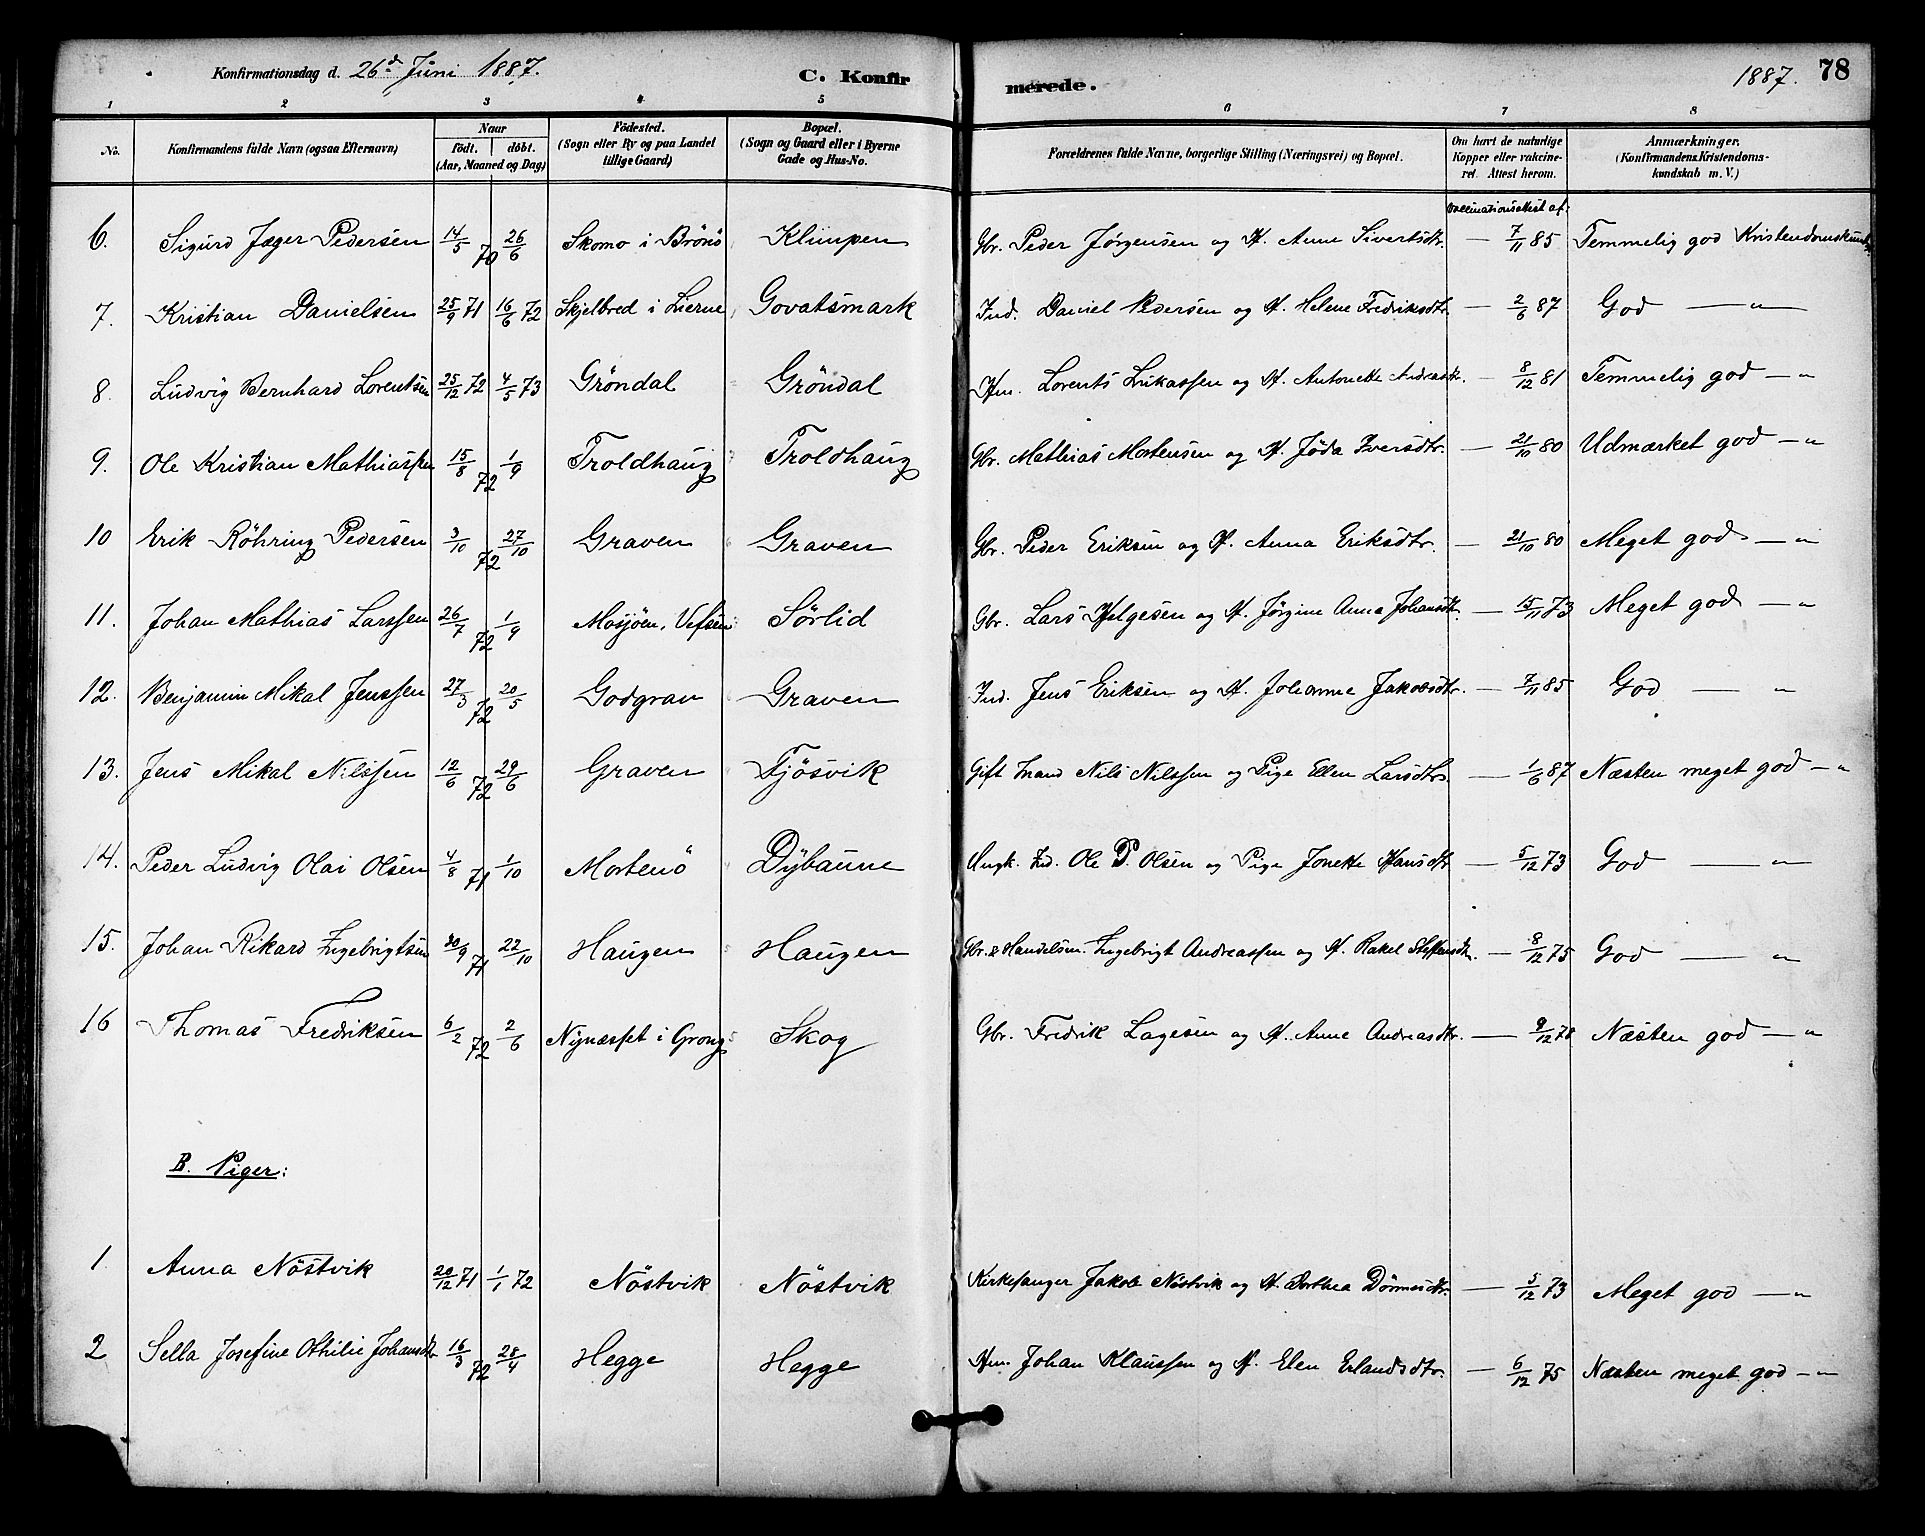 Konfirmationsdag d. 26d Juni 1887.
C. Konfirmerede.
1887. 78
1 2 3 4 5 6 7 8
No.
Konfirmandens fulde Navn (ogsaa Efternavn)
Naar
födt. döbt.
(Aar, Maaned og Dag)
Födested.
(Sogn eller By og paa Landet tillige Gaard)
Bopæl.
(Sogn og Gaard eller i Byerne Gade og Hus-No.
Forældrenes fulde Navne, borgerlige Stilling (Næringsvei) og Bopæl.
Om havt de naturlige Kopper eller vaccineret. Attest herom.
Anmærkninger.
(Konfirmandens Kristendomskundskab m. V.)
Vaccinationsattest af:
6. Sigurd Jæger Pedersen 14/5 70 26/6 Skomo i Brönö Klimpen Gbr. Peder Jørgensen og H. Anne Sivertsdtr. — 7/11 85 Temmelig god Kristendomskundsk.
7. Kristian Danielsen 25/9 71 16/6 72 Skjelbred i Lierne Govatsmark Ind. Daniel Pedersen og H. Helene Fredriksdtr. — 2/6 87 God — „
8. Ludvig Bernhard Lorentsen 25/12 72 4/5 73 Gröndal Gröndal Hm. Lorents Lukassen og H. Antonette Andreasdtr. — 8/12 81 Temmelig god — „
9. Ole Kristian Mathiassen 15/8 72 1/9 Troldhaug Troldhaug Gbr. Mathias Mortensen og H. Jöda Iversdtr. — 21/10 80 Udmærket god — „
10 Erik Röhring Pedersen 3/10 72 27/10 Graven Graven Gbr. Peder Eriksen og H. Anna Eriksdtr. — 21/10 80 Meget god — „
11. Johan Mathias Larssen 26/7 72 1/9 Mosjöen, Vefsen Sörlid Gbr. Lars Helgesen og H. Jørgine Anna Johansdtr. — 15/11 73 Meget god — „
12. Benjamin Mikal Jenssen 27/3 72 20/5 Godgrav Graven Ind. Jens Eriksen og H. Johanne Jakobsdtr. — 7/11 85 God — „
13. Jens Mikal Nilssen 12/6 72 29/6 Graven Fjösvik Gift Mand Nils Nilssen og Pige Ellen Larsdtr. — 1/6 87 Næsten meget god — „
14. Peder Ludvig Olai Olsen 4/8 71 1/10 Mortenö Dybaune Ungk. Ind. Ole P. Olsen og Pige Jonette Hansdtr. — 5/12 73 God — „
15. Johan Rikard Ingebrigtsen 30/9 71 22/10 Haugen Haugen Gbr. & Handelsm. Ingebrigt Andreassen og H. Rakel Steffensdtr. — 8/12 75 God — „
16 Thomas Fredriksen 6/2 72 2/6 Nynæsset i Grong Skog Gbr. Fredrik Lagesen og H. Anne Andreasdtr. — 9/12 78 Næsten god — „
B. Piger:
1 Anna Nöstvik 20/12 71 1/1 72 Nöstvik Nöstvik Kirkesanger Jakob Nöstvik og H. Dorthea Dönnesdtr. — 5/12 73 Meget god — „
2 Sella Josefine Othilie Johansdtr 16/3 72 28/4 Hegge Hegge Hm. Johan Klaussen og H. Elen Erlandsdtr. — 6/12 75 Næsten meget god — „